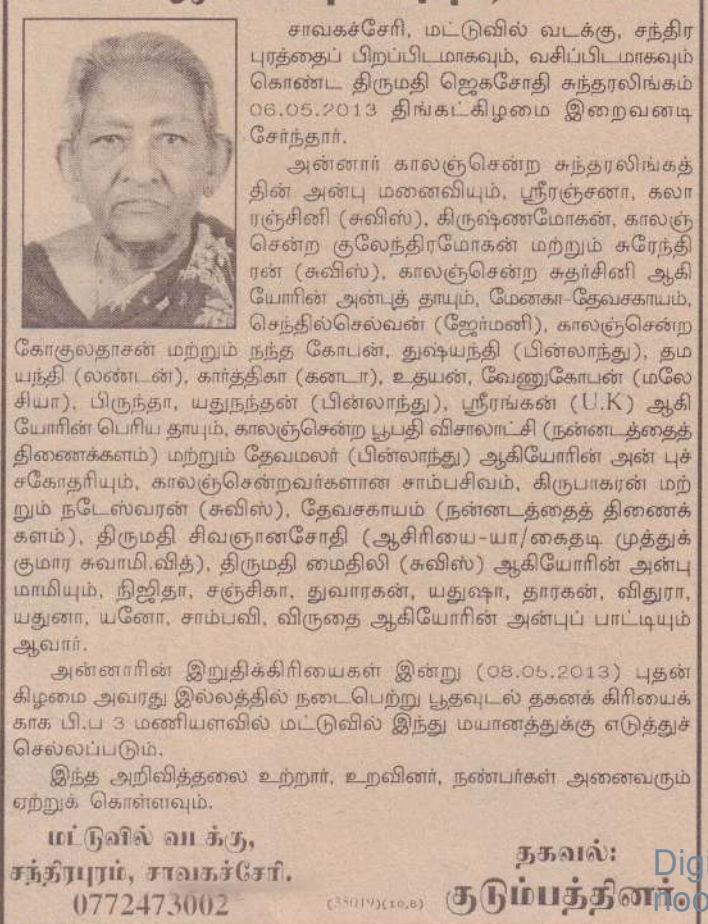 சாவகச்சேரி, மட்டுவில் வடக்கு, சந்திர
புரத்தைப் பிறப்பிடமாகவும், வசிப்பிடமாகவும்
கொண்ட திருமதி ஜெகசோதி சுந்தரலிங்கம்
06.05.2013 திங்கட்கிழமை இறைவனடி
சேர்ந்தார்.
அன்னார் காலஞ்சென்ற சுந்தரலிங்கத்
தின் அன்பு மனைவியும், ஸ்ரீரஞ்சனா, கலா
ரஞ்சினி (சுவிஸ்), கிருஷ்ணமோகன், காலஞ்
சென்ற குலேந்திரமோகன் மற்றும் சுரேந்தி
ரன் (சுவிஸ்), காலஞ்சென்ற சுதர்சினி ஆகி
யோரின் அன்புத் தாயும், மேனகா-தேவசகாயம்,
செந்தில்செல்வன் (ஜேர்மனி), காலஞ்சென்ற
கோகுலதாசன் மற்றும் நந்த கோபன், துஷ்யந்தி (பின்லாந்து), தம
யந்தி (லண்டன்), கார்த்திகா (கனடா), உதயன், வேணுகோபன் (மலே
சியா), பிருந்தா, யதுநந்தன் (பின்லாந்து), ஸ்ரீரங்கன் (U.K) ஆகி
யோரின் பெரிய தாயும், காலஞ்சென்ற பூபதி விசாலாட்சி (நன்னடத்தைத்
திணைக்களம்) மற்றும் தேவமலர் (பின்லாந்து) ஆகியோரின் அன் புச்
சகோதரியும், காலஞ்சென்றவர்களான சாம்பசிவம், கிருபாகரன் மற்
றும் நடேஸ்வரன் (சுவிஸ்), தேவசகாயம் (நன்னடத்தைத் திணைக்
களம்), திருமதி சிவஞானசோதி (ஆசிரியை-யா/கைதடி முத்துக்
குமார சுவாமி.வித்), திருமதி மைதிலி (சுவிஸ்) ஆகியோரின் அன்பு
மாமியும், நிஜிதா, சஞ்சிகா, துவாரகன், யதுஷா, தாரகன், விதுரா,
யதுனா, யனோ, சாம்பவி, விருதை ஆகியோரின் அன்புப் பாட்டியும்
ஆவார்.
அன்னாரின் இறுதிக்கிரியைகள் இன்று (08.05.2013) புதன்
கிழமை அவரது இல்லத்தில் நடைபெற்று பூதவுடல் தகனக் கிரியைக்
காக பி.ப 3 மணியளவில் மட்டுவில் இந்து மயானத்துக்கு எடுத்துச்
செல்லப்படும்.
இந்த அறிவித்தலை உற்றார், உறவினர், நண்பர்கள் அனைவரும்
ஏற்றுக் கொள்ளவும்.
மட்டுவில் வடக்கு,
சந்திரபுரம், சாவகச்சேரி.
0772473002
தகவல்:
குடும்பத்தினர்.
Digi
noo